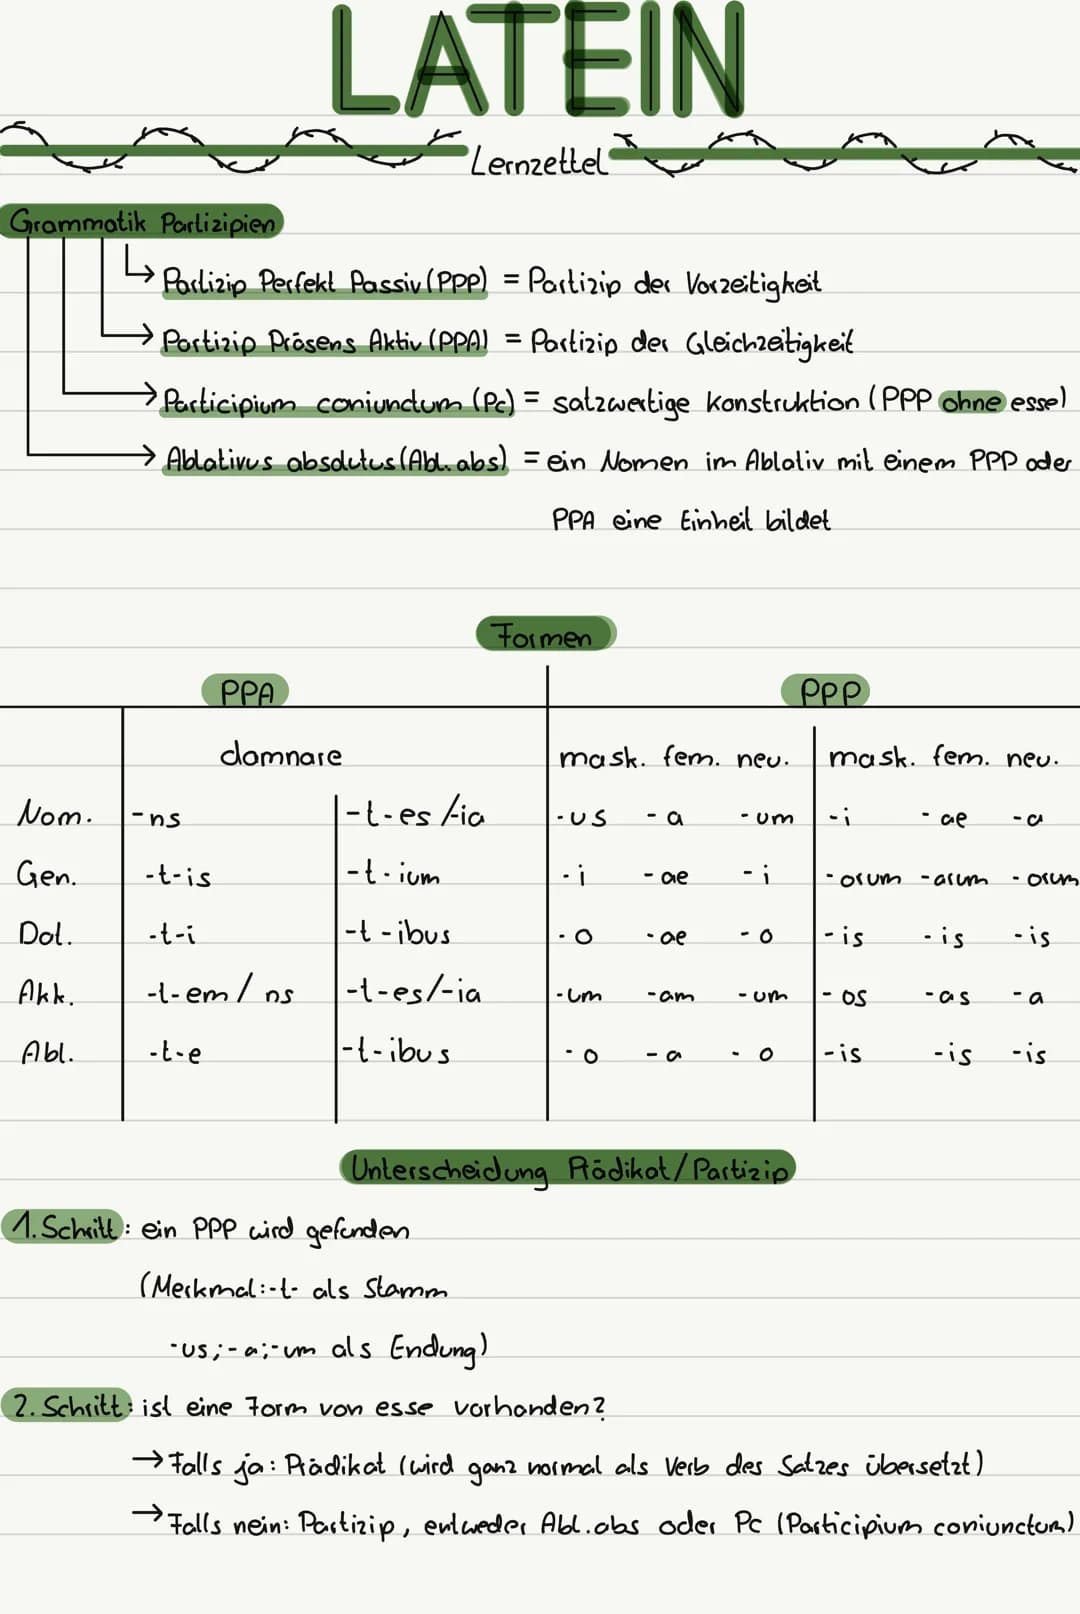 LATEIN
Lernzettel
Grammatik Partizipien
Partizip Perfekt Passiv (PPP) = Partizip der Vorzeitigkeit
Partizip Präsens Aktiv (PPA) = Partizip der Gleichzeitigkeit
Participium coniunctum (Pc) = satzwertige Konstruktion (PPP ohne esse)
Ablativus absolutus (Abl. abs) = ein Nomen im Ablativ mit einem PPP oder
PPA eine Einheit bildet
Formen
PPA PPP
damnare mask. fem. neu. mask. fem. neu.
Nom. -ns -t-es/-ia -us -a -um -i -ae -a
Gen. -t-is -t-ium -i -ae -i -orum -arum -orum
Dat. -t-i -t-ibus -o -ae -o -is -is -is
Akk. -t-em / ns -t-es/-ia -um -am -um -os -as -a
Abl. -t-e -t-ibus -o -a -o -is -is -is
Unterscheidung Prädikat/Partizip
1. Schritt: ein PPP wird gefunden
(Merkmal: -t- als Stamm
-us; -a; -um als Endung)
2. Schritt: ist eine Form von esse vorhanden?
→ Falls ja: Prädikat (wird ganz normal als Verb des Satzes übersetzt)
→ Falls nein: Partizip, entweder Abl. abs oder Pc (Participium coniunctum)